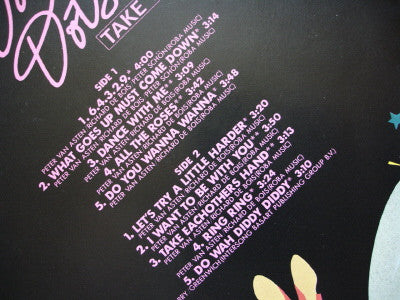 TAKE
SIDE 1
1. 6.4.3.2.9.* 4:00
PETER VAN ASTEN/RICHARD DE BOIS/PETER SCHÖN(ROBA MUSIC)
2. WHAT GOES UP MUST COME DOWN* 3:14
PETER VAN ASTEN/RICHARD DE BOIS(ROBA MUSIC)
3. DANCE WITH ME* 3:09
PETER VAN ASTEN/RICHARD DE BOIS(ROBA MUSIC)
4. ALL THE ROSES** 3:42
PETER VAN ASTEN/RICHARD DE BOIS(ROBA MUSIC)
5. DO YOU WANNA WANNA* 3:48
PETER VAN ASTEN/RICHARD DE BOIS(ROBA MUSIC)
SIDE 2
1. LET'S TRY A LITTLE HARDER* 3:20
PETER VAN ASTEN/RICHARD DE BOIS(ROBA MUSIC)
2. I WANT TO BE WITH YOU** 3:50
PETER VAN ASTEN/RICHARD DE BOIS(ROBA MUSIC)
3. TAKE EACHOTHERS HAND** 3:13
PETER VAN ASTEN/RICHARD DE BOIS(ROBA MUSIC)
4. RING RING* 3:24
PETER VAN ASTEN/RICHARD DE BOIS(ROBA MUSIC)
5. DO WAH DIDDY DIDDY* 3:10
GREENWICH(INTERSONG BASART PUBLISHING GROUP B.V.)